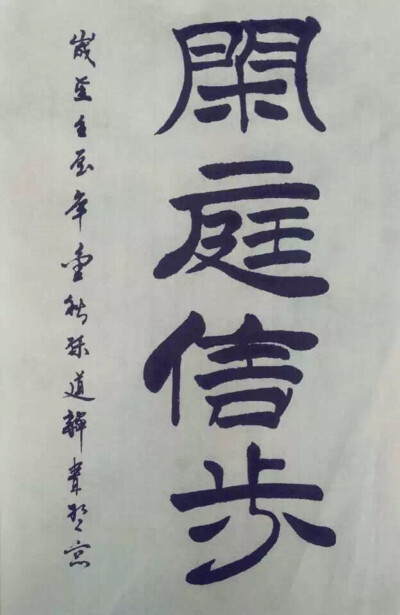 閑庭信步
歲在壬辰年金秋孫道幹書於京